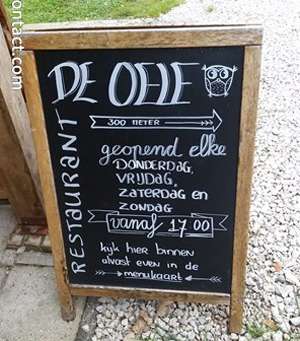 contact.com
RESTAURANT
DE OELE
300 METER
geopend elke
DONDERDAG,
VRIJDAG,
ZATERDAG EN
ZONDAG
vanaf 17 00
kijk hier binnen
alvast even in de
menukaart